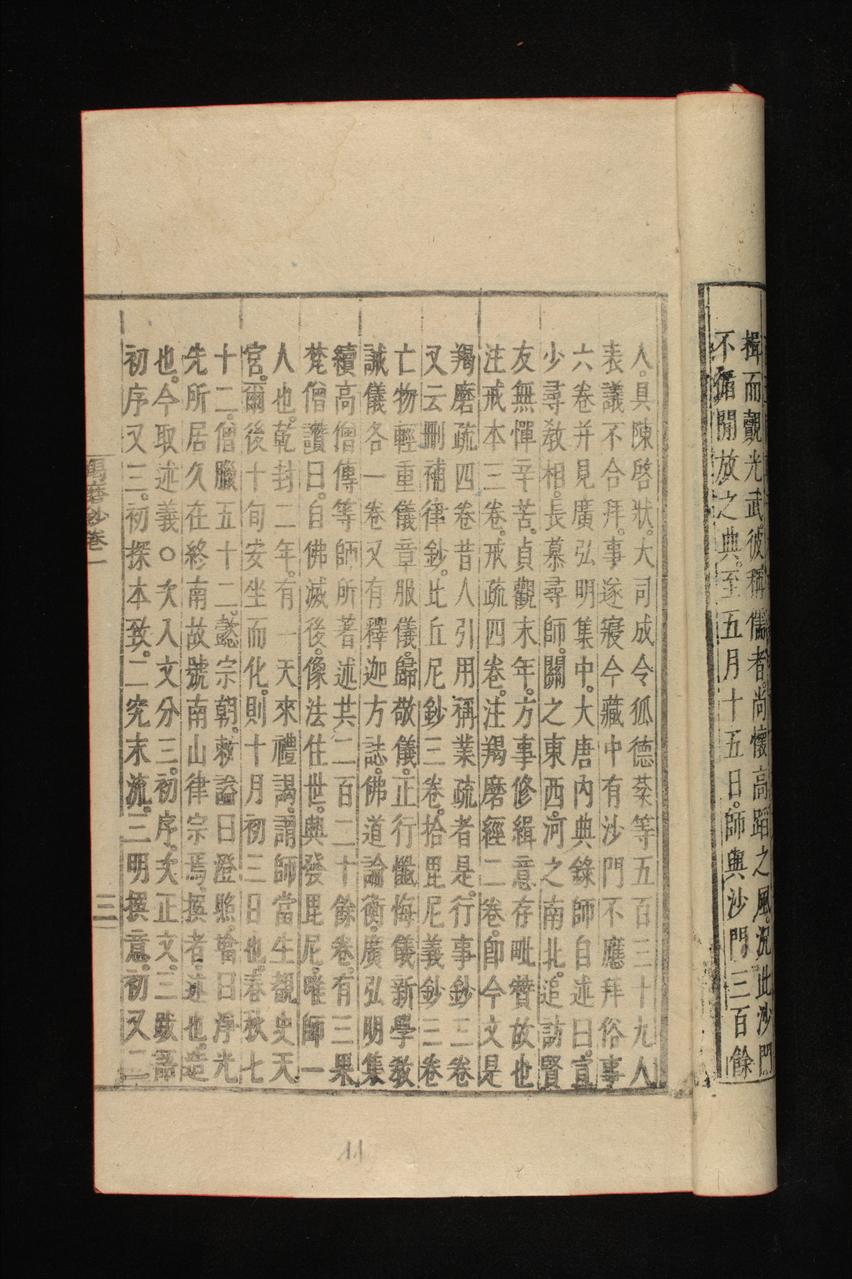 揖而觀光武彼稱儒者。尚懷高蹈之風。況此沙門
不循開放之典。至五月十五日。師與沙門三百餘
人。具陳啓狀。大司成令狐德棻等五百三十九人
表議不合拜。事遂寢今藏中有沙門不應拜俗事
六卷并見廣弘明集中。大唐內典錄師自述曰。宣
少尋教相。長慕尋師。關之東西。河之南北。追訪賢
友無憚辛苦。貞觀末年。方事修緝意存毗贊故也
注戒本三卷。戒疏四卷。注羯磨經二卷。即今文是
羯磨疏四卷昔人引用稱業疏者是。行事鈔三卷
又云刪補律鈔。比丘尼鈔三卷。拾毘尼義鈔三卷
亡物輕重儀章服儀。歸敬儀。正行懺悔儀新學教
誡儀各一卷又有釋迦方誌。佛道論衡。廣弘明集
續高僧傳等師所著述其二百二十餘卷。有三果
梵僧讚曰。自佛滅後。像法住世。興發毘尼。唯師一
人也。乾封二年。有一天來禮謁。謂師當生覩史天
宮。爾後十旬安坐而化。則十月初三日也。春秋七
十二。僧臘五十二。懿宗朝。敕謚曰澄照。塔曰淨光
先所居久在終南故號南山律宗焉。撰者。述也。造
也。今取述義○次入文分三。初序。次正文。三跋語
初序又三。初探本致。二究末流。三明撰意。初又二
羯磨鈔卷一
三
11